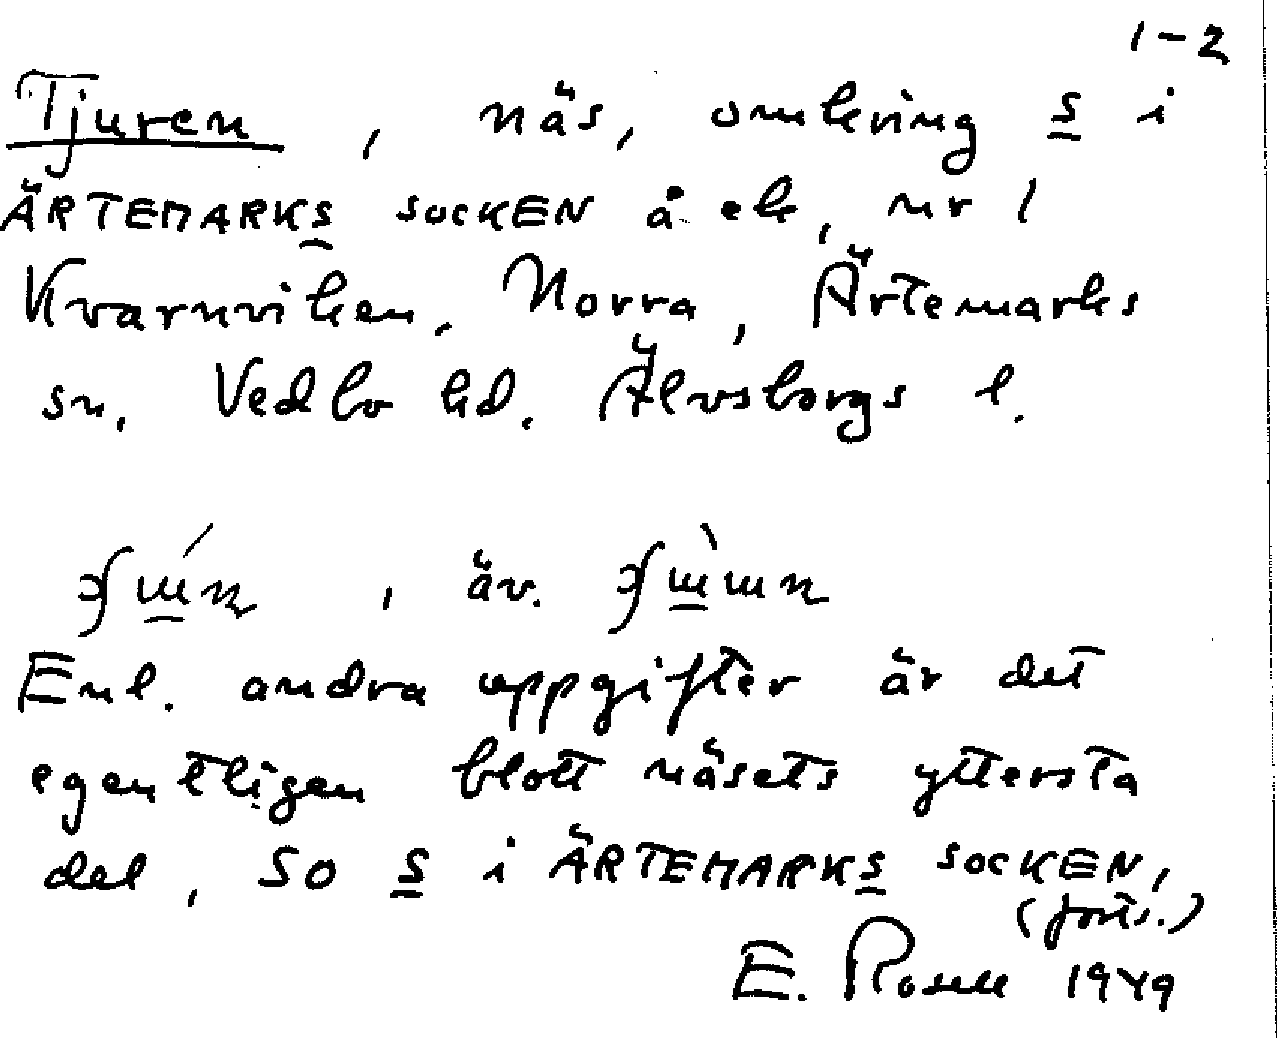 1-2
Tjuren, näs, omkring s i
ÄRTEMARKS SOCKEN å ek, nr 1
Kvarnviken, Norra, Ärtemarks
sn, Vedbo hd. Älvsborgs l.
, äv.
Enl. andra uppgifter är det
egentligen blott näsets yttersta
del, SO S i ÄRTEMARKS SOCKEN,
(forts.)
E. Rosell 1949